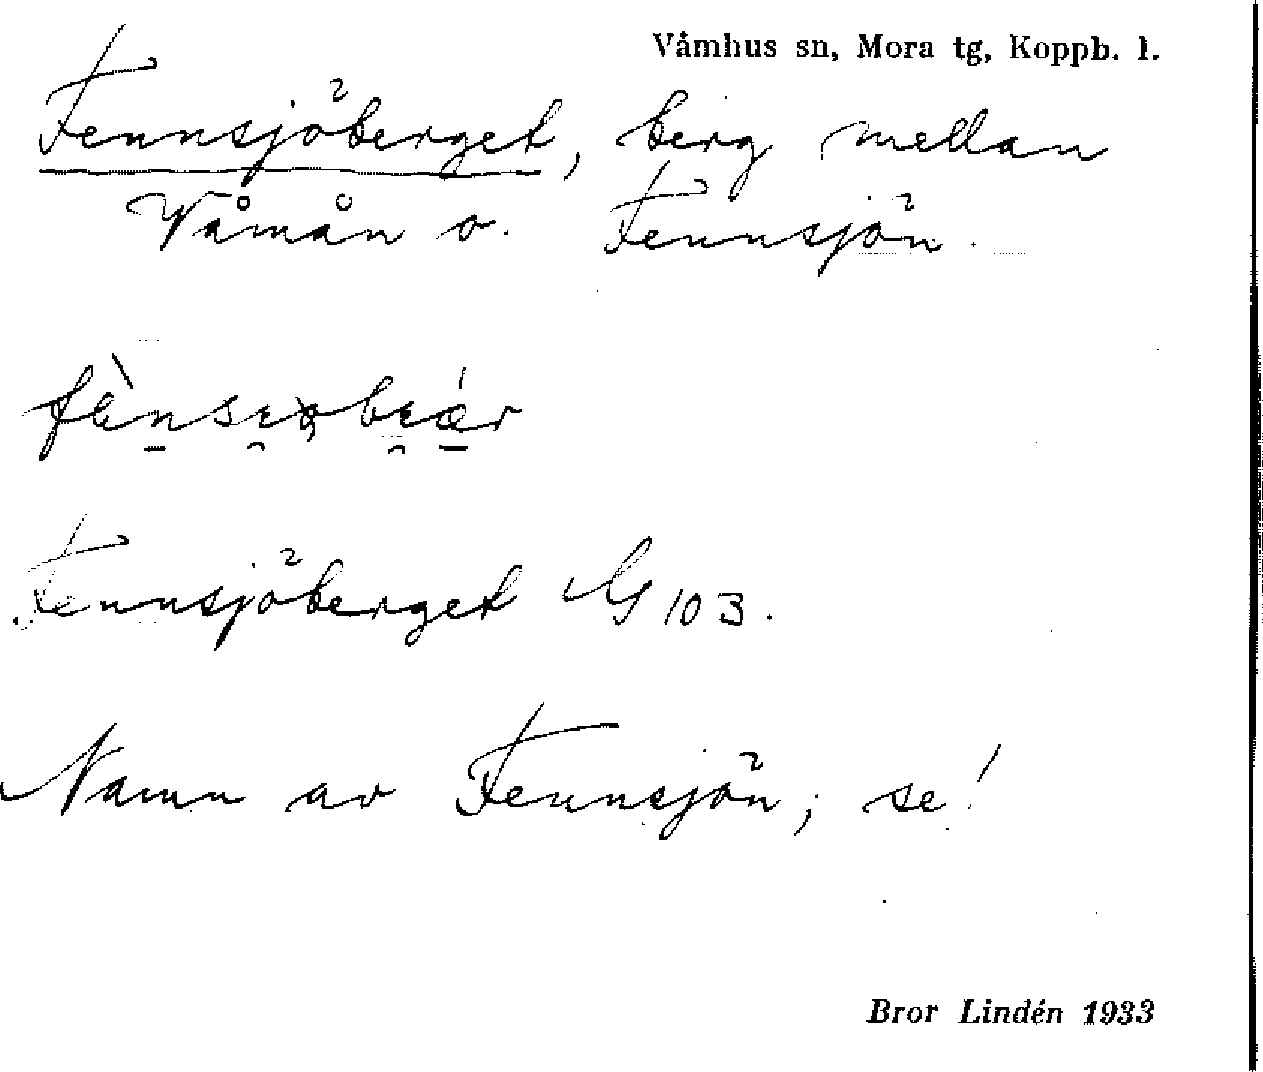 Våmhus sn, Mora tg, Koppb. l.
Fennsjöberget, berg mellan
Våmån o. Fennsjön.
Fennsjöberget G 103.
Namn av Fennsjön, se!
Bror Lindén 1933